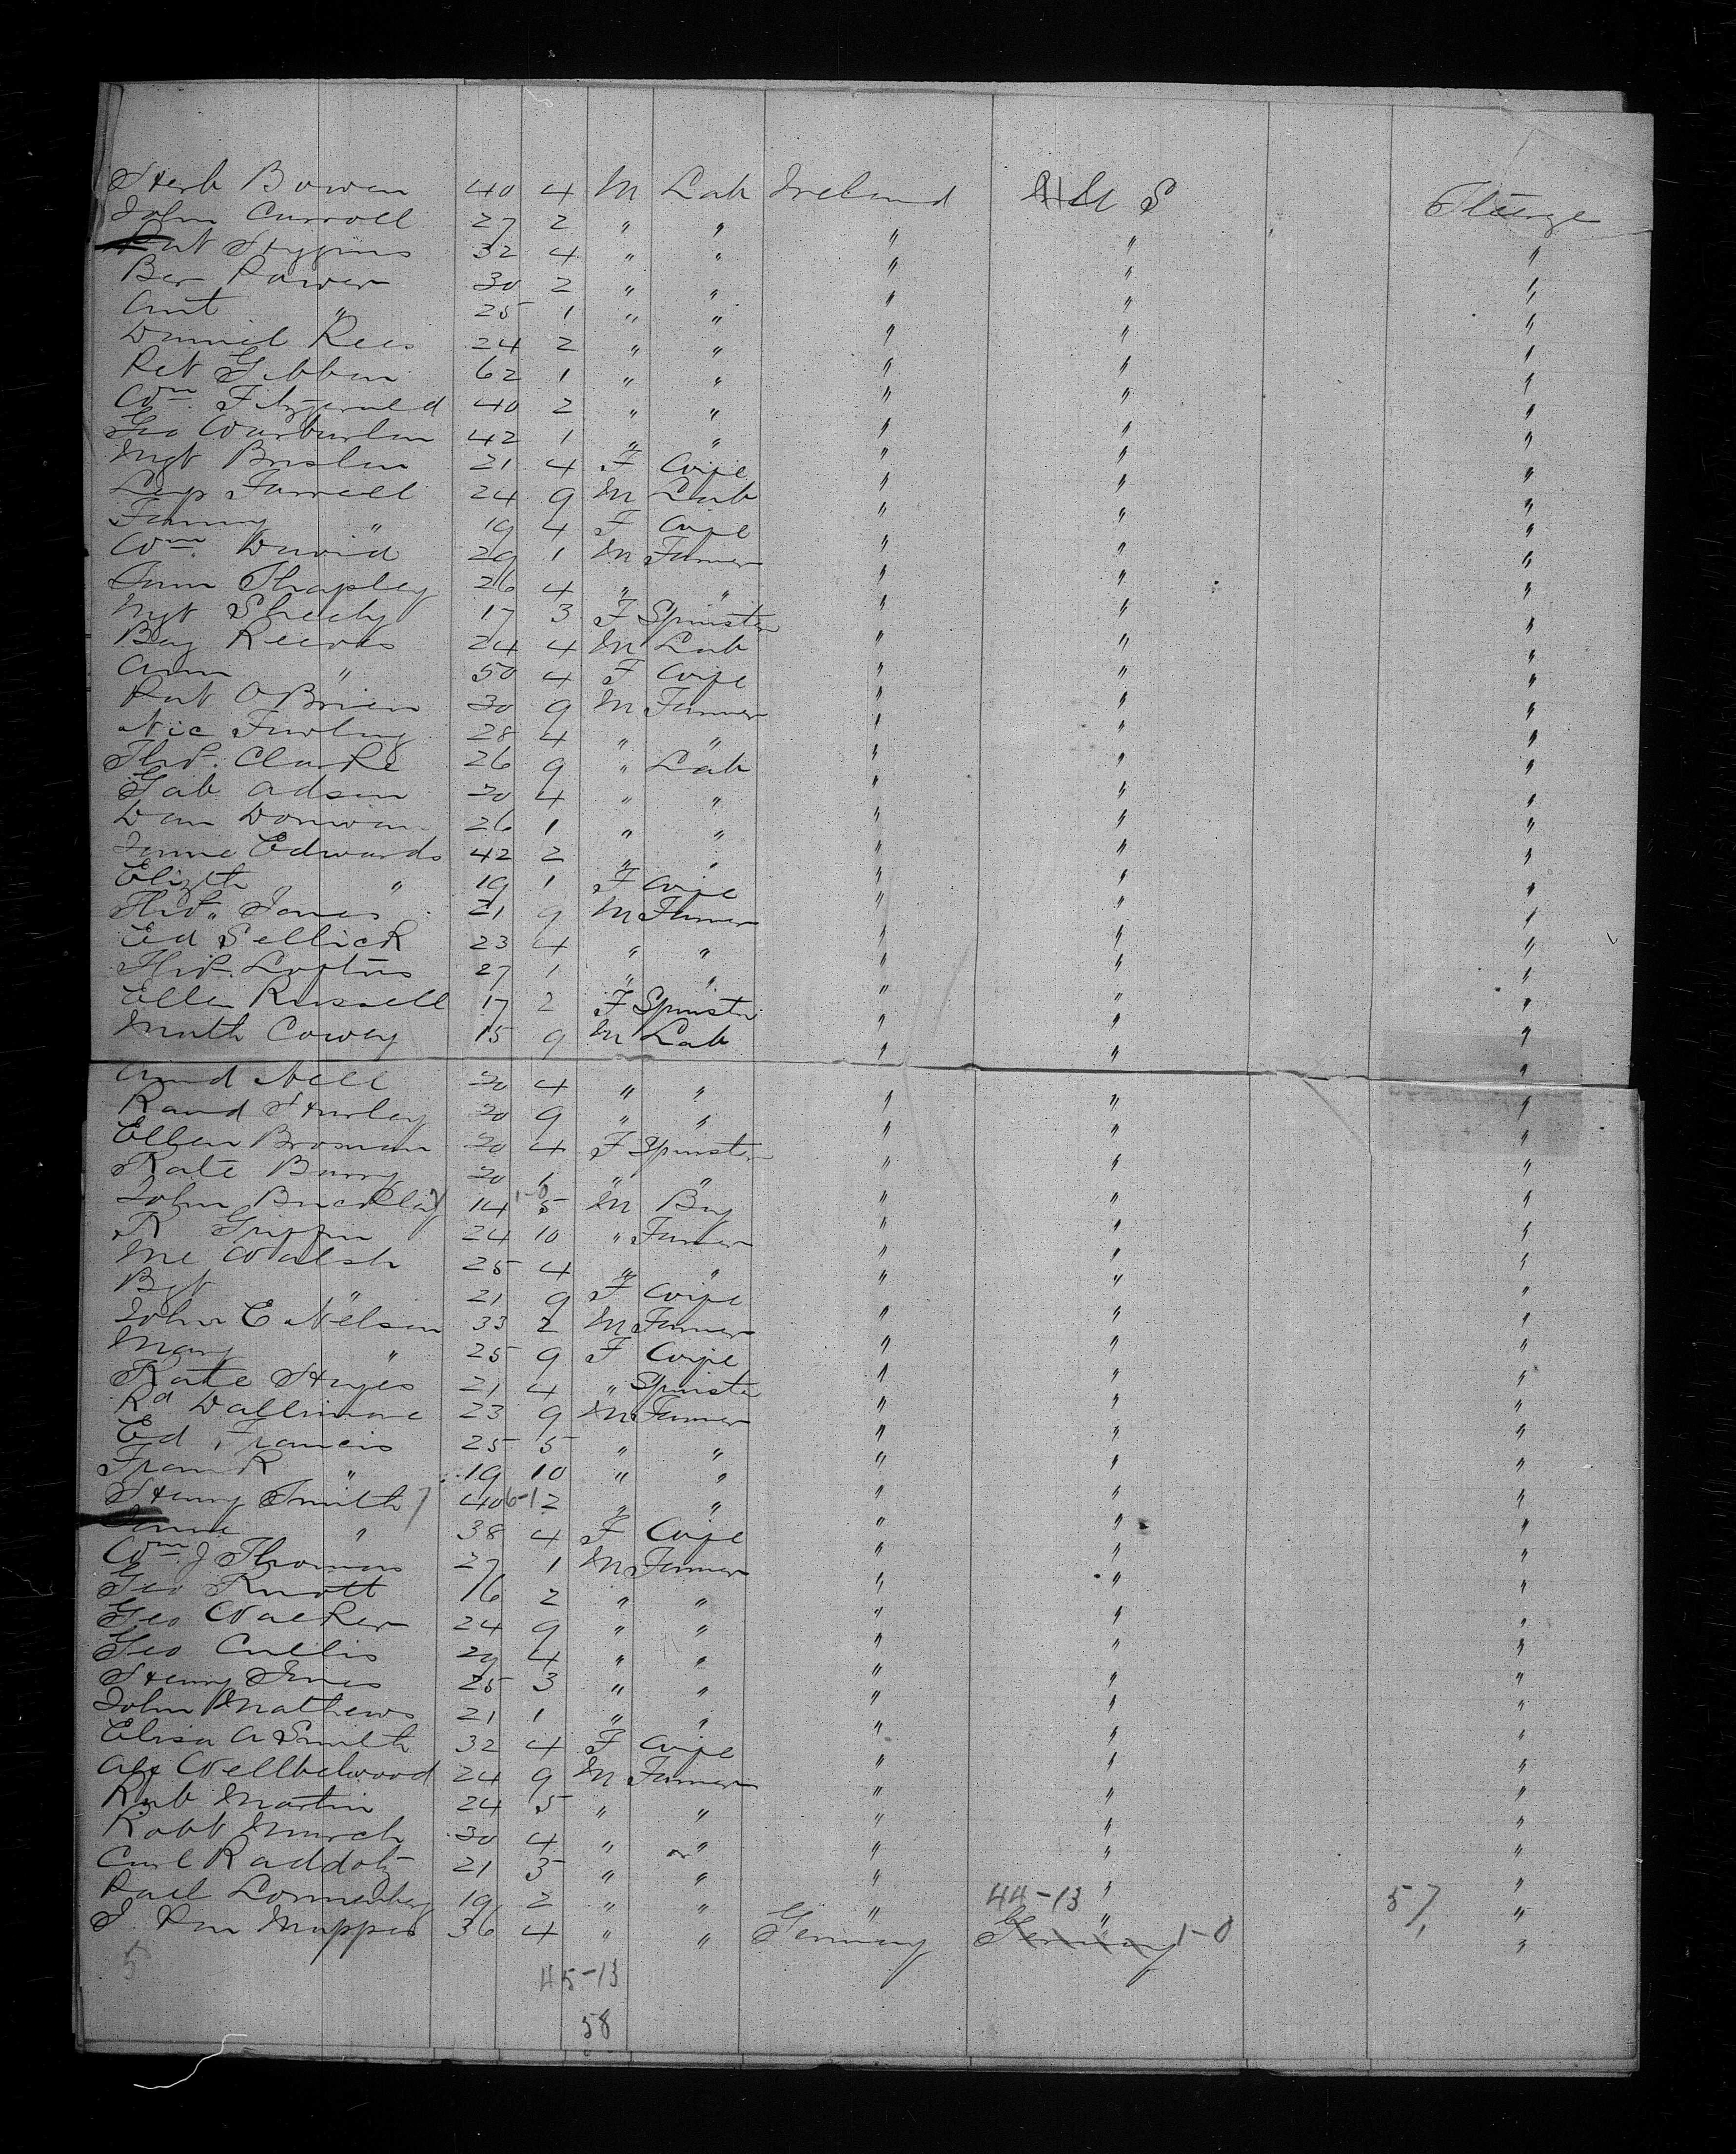 Herb Bowen 40 4 M Lab Ireland U S Steerge
John Carroll 27 2 " " " " "
Pat Higgins 32 4 " " " " "
Ber Power 30 2 " " " " "
Ant " 25 1 " " " " "
Daniel Rees 24 2 " " " " "
Pat Gibbon 62 1 " " " " "
Wm. Fitzgerald 40 2 " " " " "
Geo Warburton 42 1 " " " " "
Mgt Breslin 21 4 F Wife " " "
Farrell 24 9 M Lab " " "
Fanny " 19 4 F Wife " " "
Wm. David 29 1 M Farmer " " "
26 4 " " " " "
Mgt Sheehy 17 3 F Spinster " " "
Reeves 24 4 M Lab " " "
Ann " 50 4 F Wife " " "
Pat OBrien 30 9 M Farmer " " "
Nic Furlong 28 4 " " " " "
Thos. Clarke 26 9 " Lab " " "
Gab Adson 20 4 " " " " "
Dan Donivan 26 1 " " " " "
Edwards 42 2 " " " " "
Elizth " 19 1 F Wife " " "
Thos. Jones 21 9 M Farmer " " "
Ed Sellick 23 4 " " " " "
Thos. Loftus 27 1 " " " " "
Ellen Russell 17 2 F Spinster " " "
Math Cowey 15 9 M Lab " " "
Nell 20 4 " " " " "
Hurley 20 9 " " " " "
Ellen Brosnan 20 4 F Spinster " " "
Kate Barry 20 1 " " " " "
John Buckley 14 1-0 5 M Boy " " "
R Griffin 24 10 " Farmer " " "
Mc Walsh 25 4 " " " " "
Bgt " 21 9 F Wife " " "
John E Nelson 33 2 M Farmer " " "
Mary " 25 9 F Wife " " "
Kate Hayes 21 4 " Spinster " " "
Rd Dallimore 23 9 M Farmer " " "
Ed Francis 25 5 " " " " "
Frank " 19 10 " " " " "
Henry Smith 40 6-1 2 " " " " "
" 38 4 F Wife " " "
Wm. J Thomas 27 1 M Farmer " " "
Geo Knott 16 2 " " " " "
Geo Walker 24 9 " " " " "
Geo Cullis 29 4 " " " " "
Henry Jones 25 3 " " " " "
John Mathews 21 1 " " " " "
Elisa A Smith 32 4 F Wife " " "
Wellbelwood 24 9 M Farmer " " "
Rob Martin 24 5 " " " " "
Robt Murch 30 4 " " " " "
Carl Raddatz 21 3 " " " " "
Lonnenberg 19 2 " " " 44-13 " 57 "
J. Van Mappes 36 4 " " Germany Germany 1-0 "
5
45-13
58